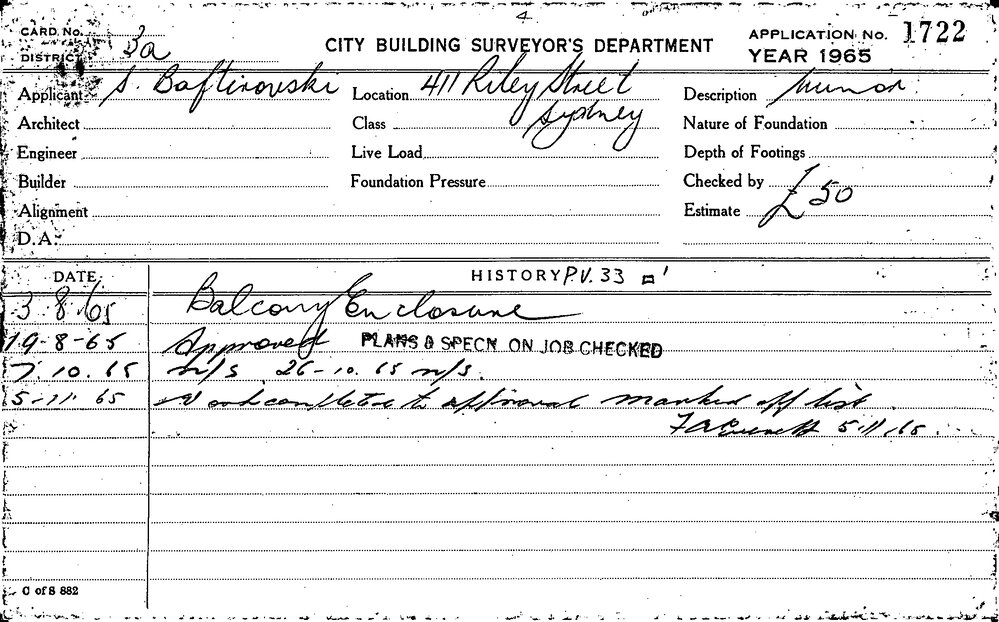 4
CARD. No.
DISTRICT 3a
CITY BUILDING SURVEYOR'S DEPARTMENT
APPLICATION No. 1722
YEAR 1965
Applicant S. Baftirovski
Location 411 Riley Street
Sydney
Description Minor
Architect
Class
Nature of Foundation
Engineer
Live Load
Depth of Footings
Builder
Foundation Pressure
Checked by
Alignment
Estimate £50
D.A.
DATE
HISTORY P.V. 33
3 8 65 Balcony Enclosure
19-8-65 Approved PLANS & SPECN ON JOB CHECKED
7.10.65 n/s 26-10.65 n/s.
5-11 65 Work completed to approval marked off list.
5.11.65.
C of S 882